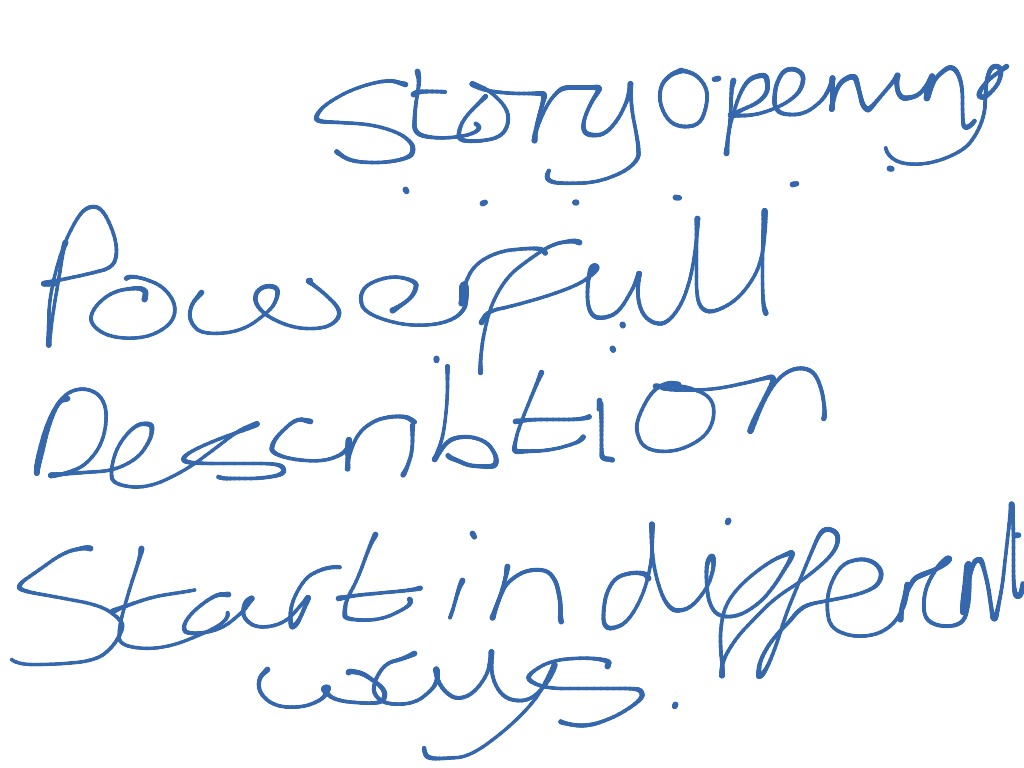 Story opening
Powerfull
Describtion
Start in different
ways.